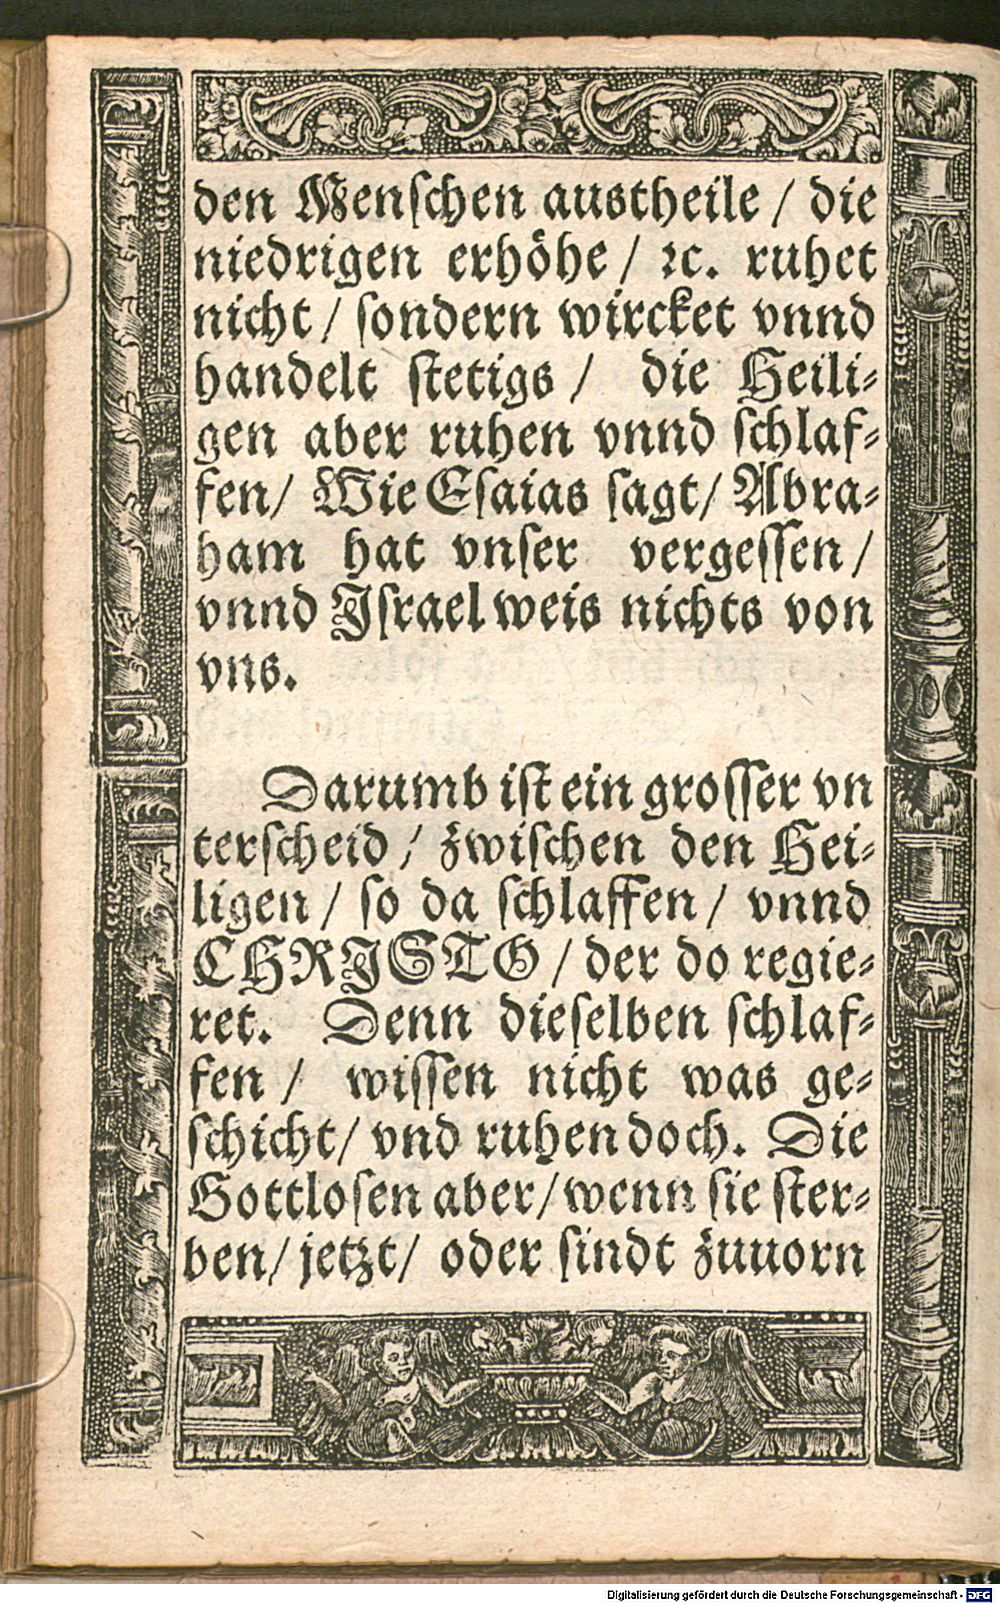 den Menschen austheile / die
niedrigen erhöhe / ꝛc. ruhet
nicht / sondern wircket vnnd
handelt stetigs / die Heili⸗
gen aber ruhen vnnd schlaf⸗
fen / Wie Esaias sagt / Abra⸗
ham hat vnser vergessen /
vnnd Israel weis nichts von
vns.
Darumb ist ein grosser vn
terscheid / zwischen den Hei⸗
ligen / so da schlaffen / vnnd
CHRISTO / der do regie⸗
ret. Denn dieselben schlaf⸗
fen / wissen nicht was ge⸗
schicht / vnd ruhen doch. Die
Gottlosen aber / wenn sie ster⸗
ben / jetzt / oder sindt zuuorn
Digitalisierung gefördert durch die Deutsche Forschungsgemeinschaft - DFG